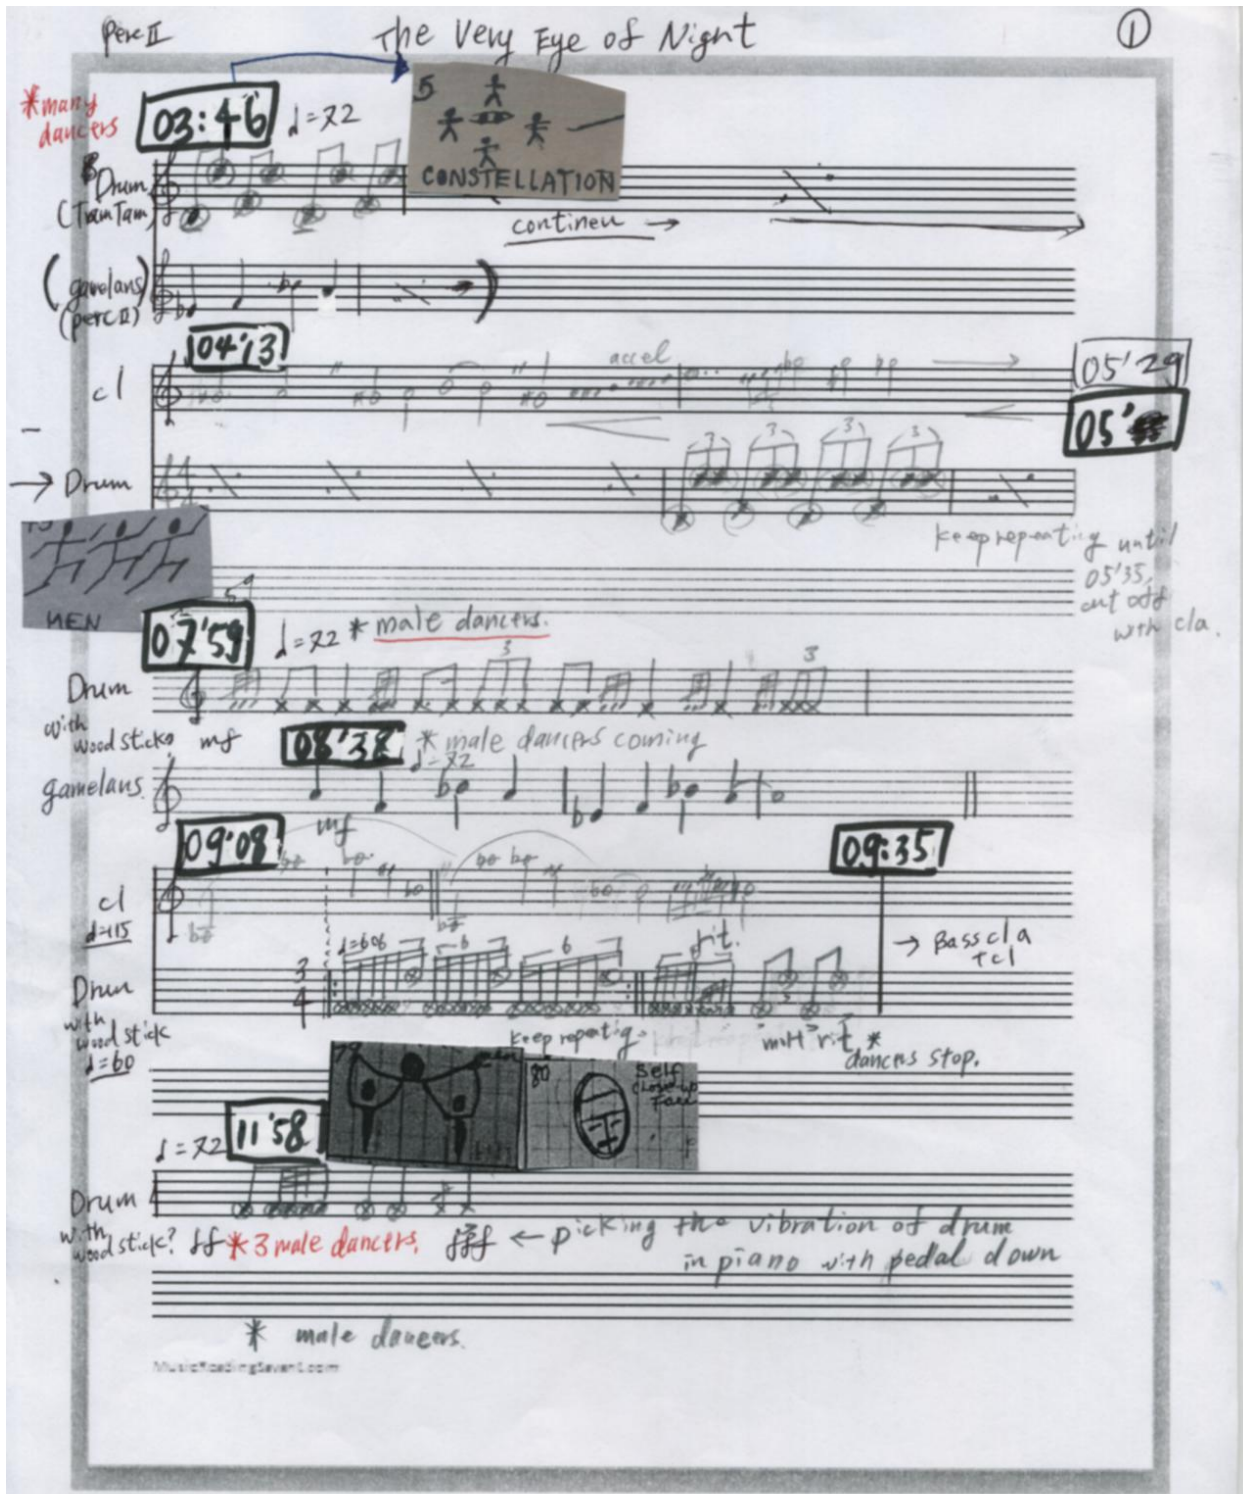 Perc II
The Very Eye of Night
1
*many dancers
03:46
♩=72
5
CONSTELLATION
Drum
(TamTam)
contineu →
(gamelans)
(perc II)
04'13
cl
accel
05'29
05'
→ Drum
3 3 3 3
keep repeating until
05'35,
cut off
with cla.
MEN
07'59
♩=72 * male dancers.
3
3
Drum
with
wood sticks
mf
08'38
* male dancers coming
♩=72
gamelans.
mf
09'08
09:35
cl
♩=115
→ Bass cla
+cl
♩=60
6
6
rit.
3
4
Drum
with
wood stick
♩=60
keep repeatig
molt rit.
*
dancers stop.
80
Self
Close-up
Face
♩=72
11'58
Drum
with
wood stick?
ff
*3 male dancers.
fff
← picking the vibration of drum
in piano with pedal down
* male dancers.
MusicReadingSavant.com